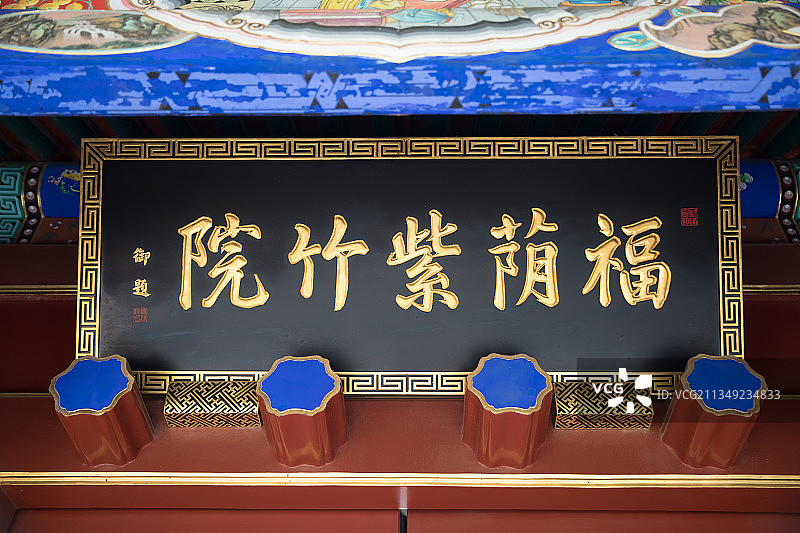 福荫紫竹院
御题
VCG ID:VCG211349234833